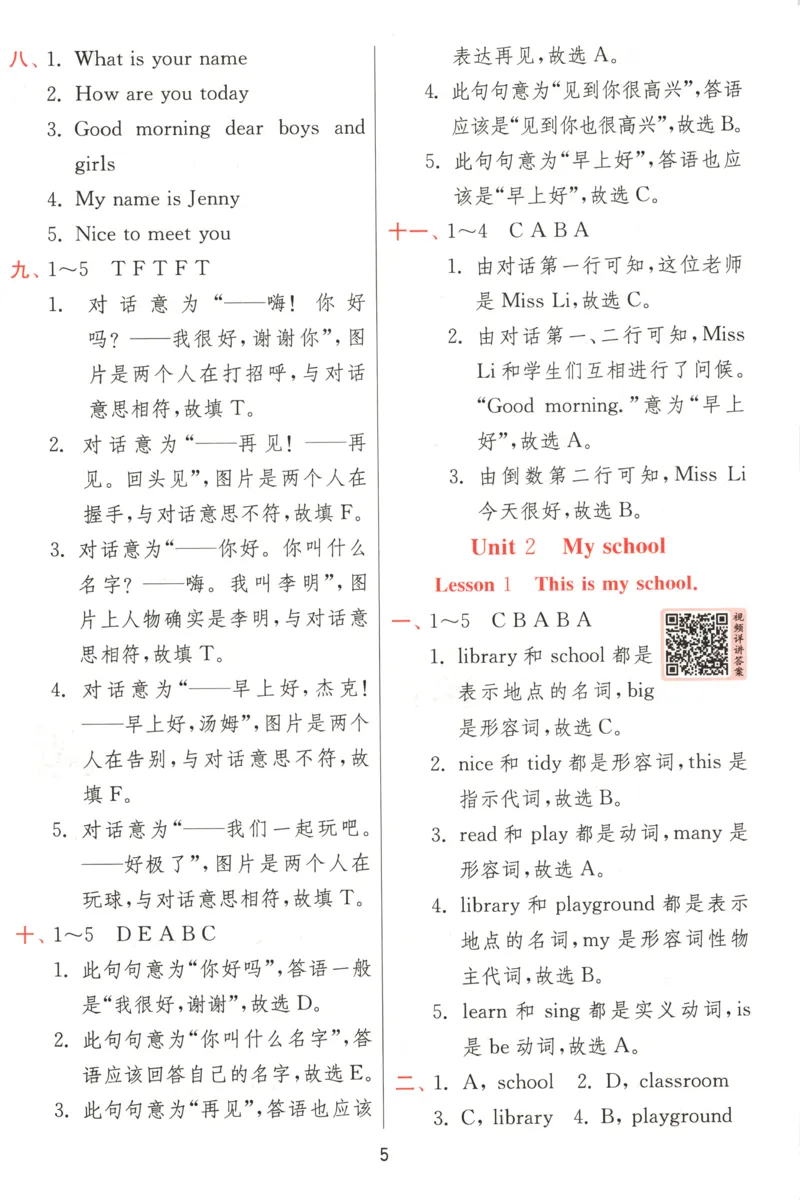 八、1. What is your name
2. How are you today
3. Good morning dear boys and
girls
4. My name is Jenny
5. Nice to meet you
九、1～5 T F T F T
1. 对话意为“——嗨！你好
吗？——我很好,谢谢你”,图
片是两个人在打招呼,与对话
意思相符,故填 T。
2. 对话意为“——再见！——再
见。回头见”,图片是两个人在
握手,与对话意思不符,故填 F。
3. 对话意为“——你好。你叫什么
名字？——嗨。我叫李明”,图
片上人物确实是李明,与对话意
思相符,故填 T。
4. 对话意为“——早上好,杰克！
——早上好,汤姆”,图片是两个
人在告别,与对话意思不符,故
填 F。
5. 对话意为“——我们一起玩吧。
——好极了”,图片是两个人在
玩球,与对话意思相符,故填 T。
十、1～5 D E A B C
1. 此句句意为“你好吗”,答语一般
是“我很好,谢谢”,故选 D。
2. 此句句意为“你叫什么名字”,答
语应该回答自己的名字,故选 E。
3. 此句句意为“再见”,答语也应该
表达再见,故选 A。
4. 此句句意为“见到你很高兴”,答语
应该是“见到你也很高兴”,故选 B。
5. 此句句意为“早上好”,答语也应
该是“早上好”,故选 C。
十一、1～4 C A B A
1. 由对话第一行可知,这位老师
是 Miss Li,故选 C。
2. 由对话第一、二行可知,Miss
Li 和学生们互相进行了问候。
“Good morning.”意为“早上
好”,故选 A。
3. 由倒数第二行可知,Miss Li
今天很好,故选 B。
Unit 2 My school
Lesson 1 This is my school.
一、1～5 C B A B A
视频详讲答案
1. library 和 school 都是
表示地点的名词,big
是形容词,故选 C。
2. nice 和 tidy 都是形容词,this 是
指示代词,故选 B。
3. read 和 play 都是动词,many 是
形容词,故选 A。
4. library 和 playground 都是表示
地点的名词,my 是形容词性物
主代词,故选 B。
5. learn 和 sing 都是实义动词,is
是 be 动词,故选 A。
二、1. A, school 2. D, classroom
3. C, library 4. B, playground
5